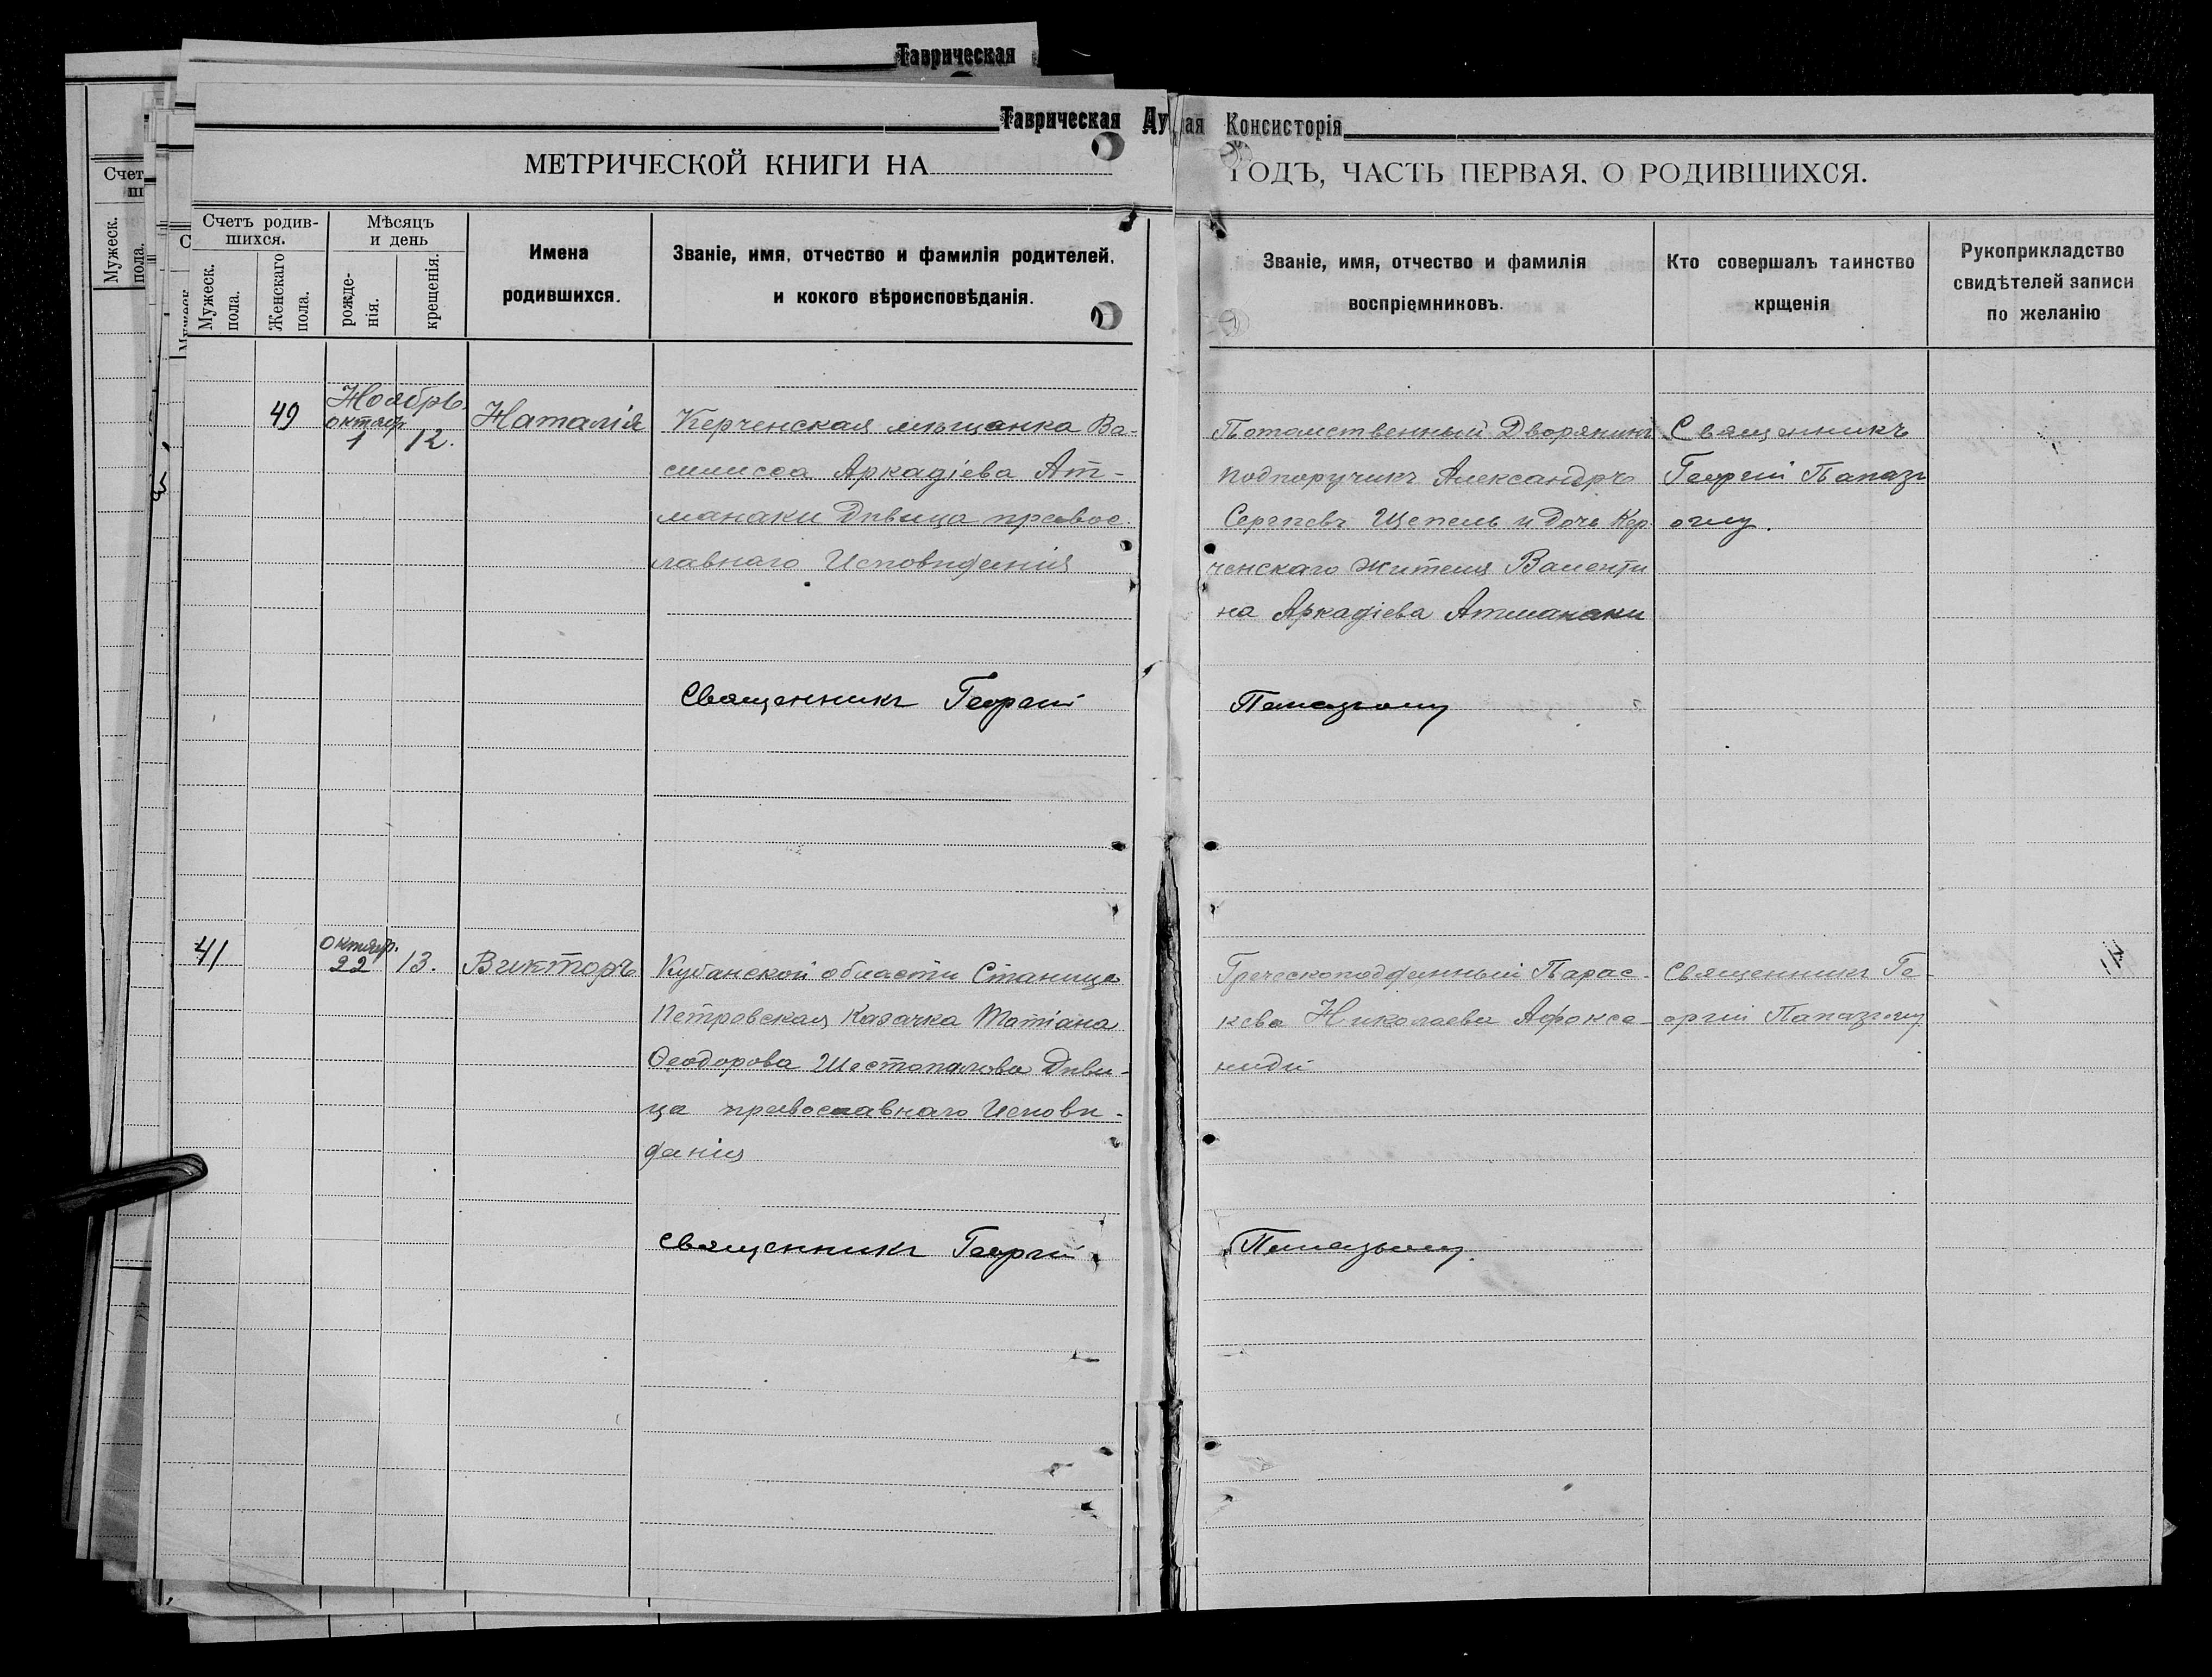 Таврическая
Таврическая Ду ая Консисторія
МЕТРИЧЕСКОЙ КНИГИ НА
ГОДЪ, ЧАСТЬ ПЕРВАЯ, О РОДИВШИХСЯ.
Счет
Мужеск.
пола.
Счетъ родив-
шихся.
Мужеск.
пола.
Женскаго
пола.
Мѣсяцъ
и день
рожде-
нія.
крещенія.
Имена
родившихся.
Званіе, имя, отчество и фамилія родителей,
и кокого вѣроисповѣданія.
Званіе, имя, отчество и фамилія
воспріемниковъ.
Кто совершалъ таинство
крщенія
Рукоприкладство
свидѣтелей записи
по желанію
49
Ноябрь.
октябр.
1
12.
Наталія
Керченская мѣщанка Ва-
силисса Аркадіева Ат-
манаки Дѣвица правос-
лавнаго Исповѣданія
Потомственный Дворянинъ
подпоручикъ Александръ
Сергѣевъ Щепель и Дочь Кер
ченскаго жителя Валенти
на Аркадіева Атманаки
Священникъ
Георгій Папазъ
оглу.
Священникъ Георгій
Папазъоглу
41
октябр.
22
13.
Викторъ
Кубанской области Станица
Петровская Казачка Татіана
Ѳеодорова Шестопалова Дѣви-
ца православнаго Исповѣ-
данія
Греческоподданный Парас-
кева Николаева Афокса-
ниди
Священникъ Ге-
оргій Папазъоглу.
Священникъ Георгій
Папазъоглу.